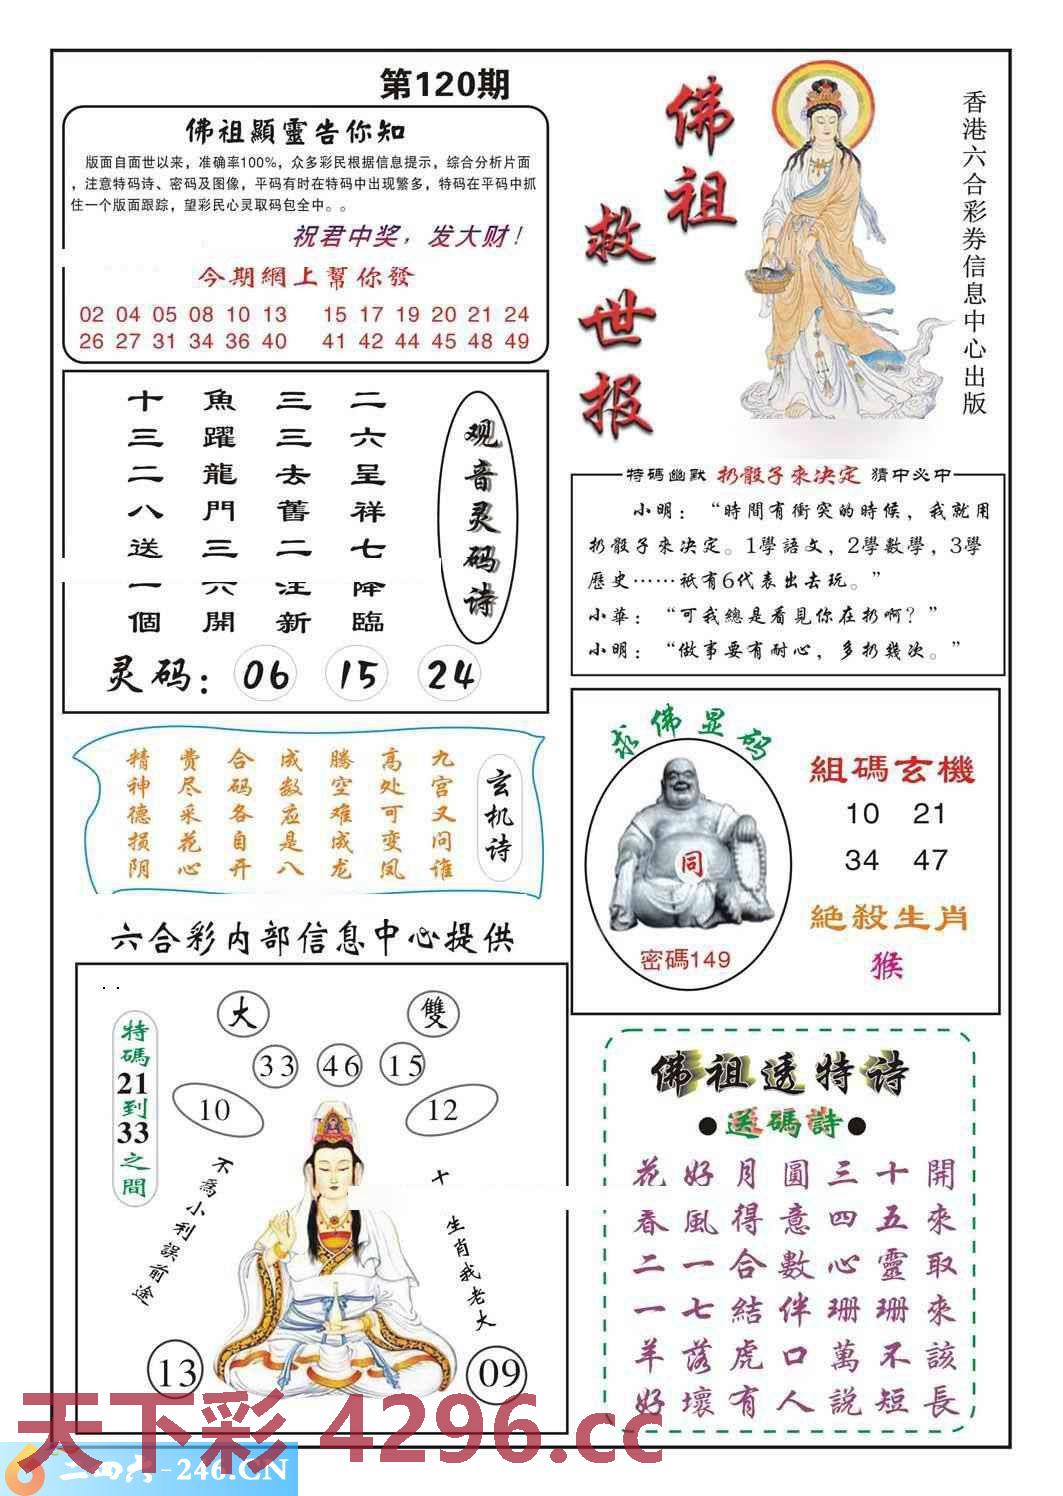 第120期
佛祖顯靈告你知
版面自面世以来，准确率100%，众多彩民根据信息提示，综合分析片面
，注意特码诗、密码及图像，平码有时在特码中出现繁多，特码在平码中抓
住一个版面跟踪，望彩民心灵取码包全中。。
祝君中奖，发大财！
今期網上幫你發
02 04 05 08 10 13 15 17 19 20 21 24
26 27 31 34 36 40 41 42 44 45 48 49
佛祖
救世报
香港六合彩券信息中心出版
观音灵码诗
二六呈祥七降臨
三三去舊二注新
魚躍龍門三六開
十三二八送一個
灵码：06 15 24
特碼幽默 扔骰子來决定 猜中必中
小明：“時間有衝突的時候，我就用
扔骰子來决定。1學語文，2學數學，3學
歷史……衹有6代表出去玩。”
小華：“可我總是看見你在扔啊？”
小明：“做事要有耐心，多扔幾次。”
玄机诗
九宫又问谁
高处可变凤
腾空难成龙
成数应是八
合码各自开
费尽采花心
精神德损阴
求佛显码
同
密碼149
組碼玄機
10 21
34 47
絕殺生肖
猴
六合彩内部信息中心提供
大
雙
33 46 15
10
12
特碼21到33之間
不爲小利誤前途
十 生肖我老大
13
09
佛祖透特诗
●送碼詩●
花好月圓三十開
春風得意四五來
二一合數心靈取
一七結伴珊珊來
羊落虎口萬不該
好壞有人説短長
天下彩 4296.cc
二四六-246.CN